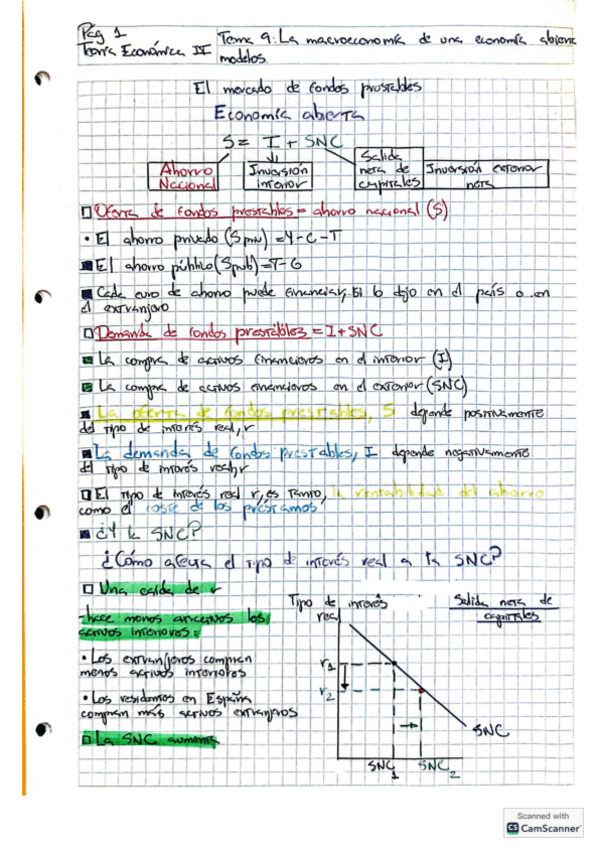 Pág 1
Teoría Económica IV
Tema 9: La macroeconomía de una economía abierta
modelos.
El mercado de fondos prestables
Economía abierta
S = I + SNC
Ahorro
Nacional
Inversión
interior
Salida
neta de
capitales
Inversión exterior
neta
Oferta de fondos prestables = ahorro nacional (S)
• El ahorro privado (Spriv) = Y - C - T
El ahorro público (Spub) = T - G
Cada euro de ahorro puede financiar, El lo dijo en el país o en
el extranjero
Demanda de fondos prestables = I + SNC
La compra de activos financieros en el interior (I)
La compra de activos financieros en el exterior (SNC)
La oferta de fondos prestables, S depende positivamente
del tipo de interés real, r
La demanda de fondos prestables, I depende negativamente
del tipo de interés real, r
El tipo de interés real r, es tanto, la rentabilidad del ahorro
como el coste de los préstamos,
¿Y la SNC?
¿Cómo afecta el tipo de interés real a la SNC?
Una caída de r
hace menos atractivos los
activos interiores:
• Los extranjeros compran
menos activos interiores
• Los residentes en España
compran más activos extranjeros
La SNC aumenta
Tipo de interés
real
Salida neta de
capitales
r1
r2
SNC
SNC1
SNC2
Scanned with
CS CamScanner